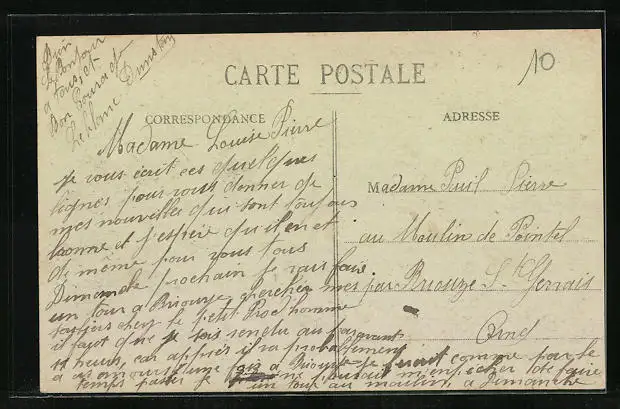 10
Bien
le Bonjour
a tous, et
Bon Courage
CARTE POSTALE
CORRESPONDANCE
ADRESSE
Madame Louise Pierre
Je vous écrit ces quelques
lignes pour vous donner de
mes nouvelles qui sont toujours
bonne et j'espère qu'il en et
de même pour vous tous
Dimanche prochain je vais faire
un tour a Briouze chercher mes
chez le petit Prod'homme
il faut que je sois rendu auparavant
11 heurs, car après il va probablement
a a Briouze je
temps passer je
un tour au moulin, a Dimanche
Madame Paul Pierre
au Moulin de Pointel
par Briouze St Gervais
Orne